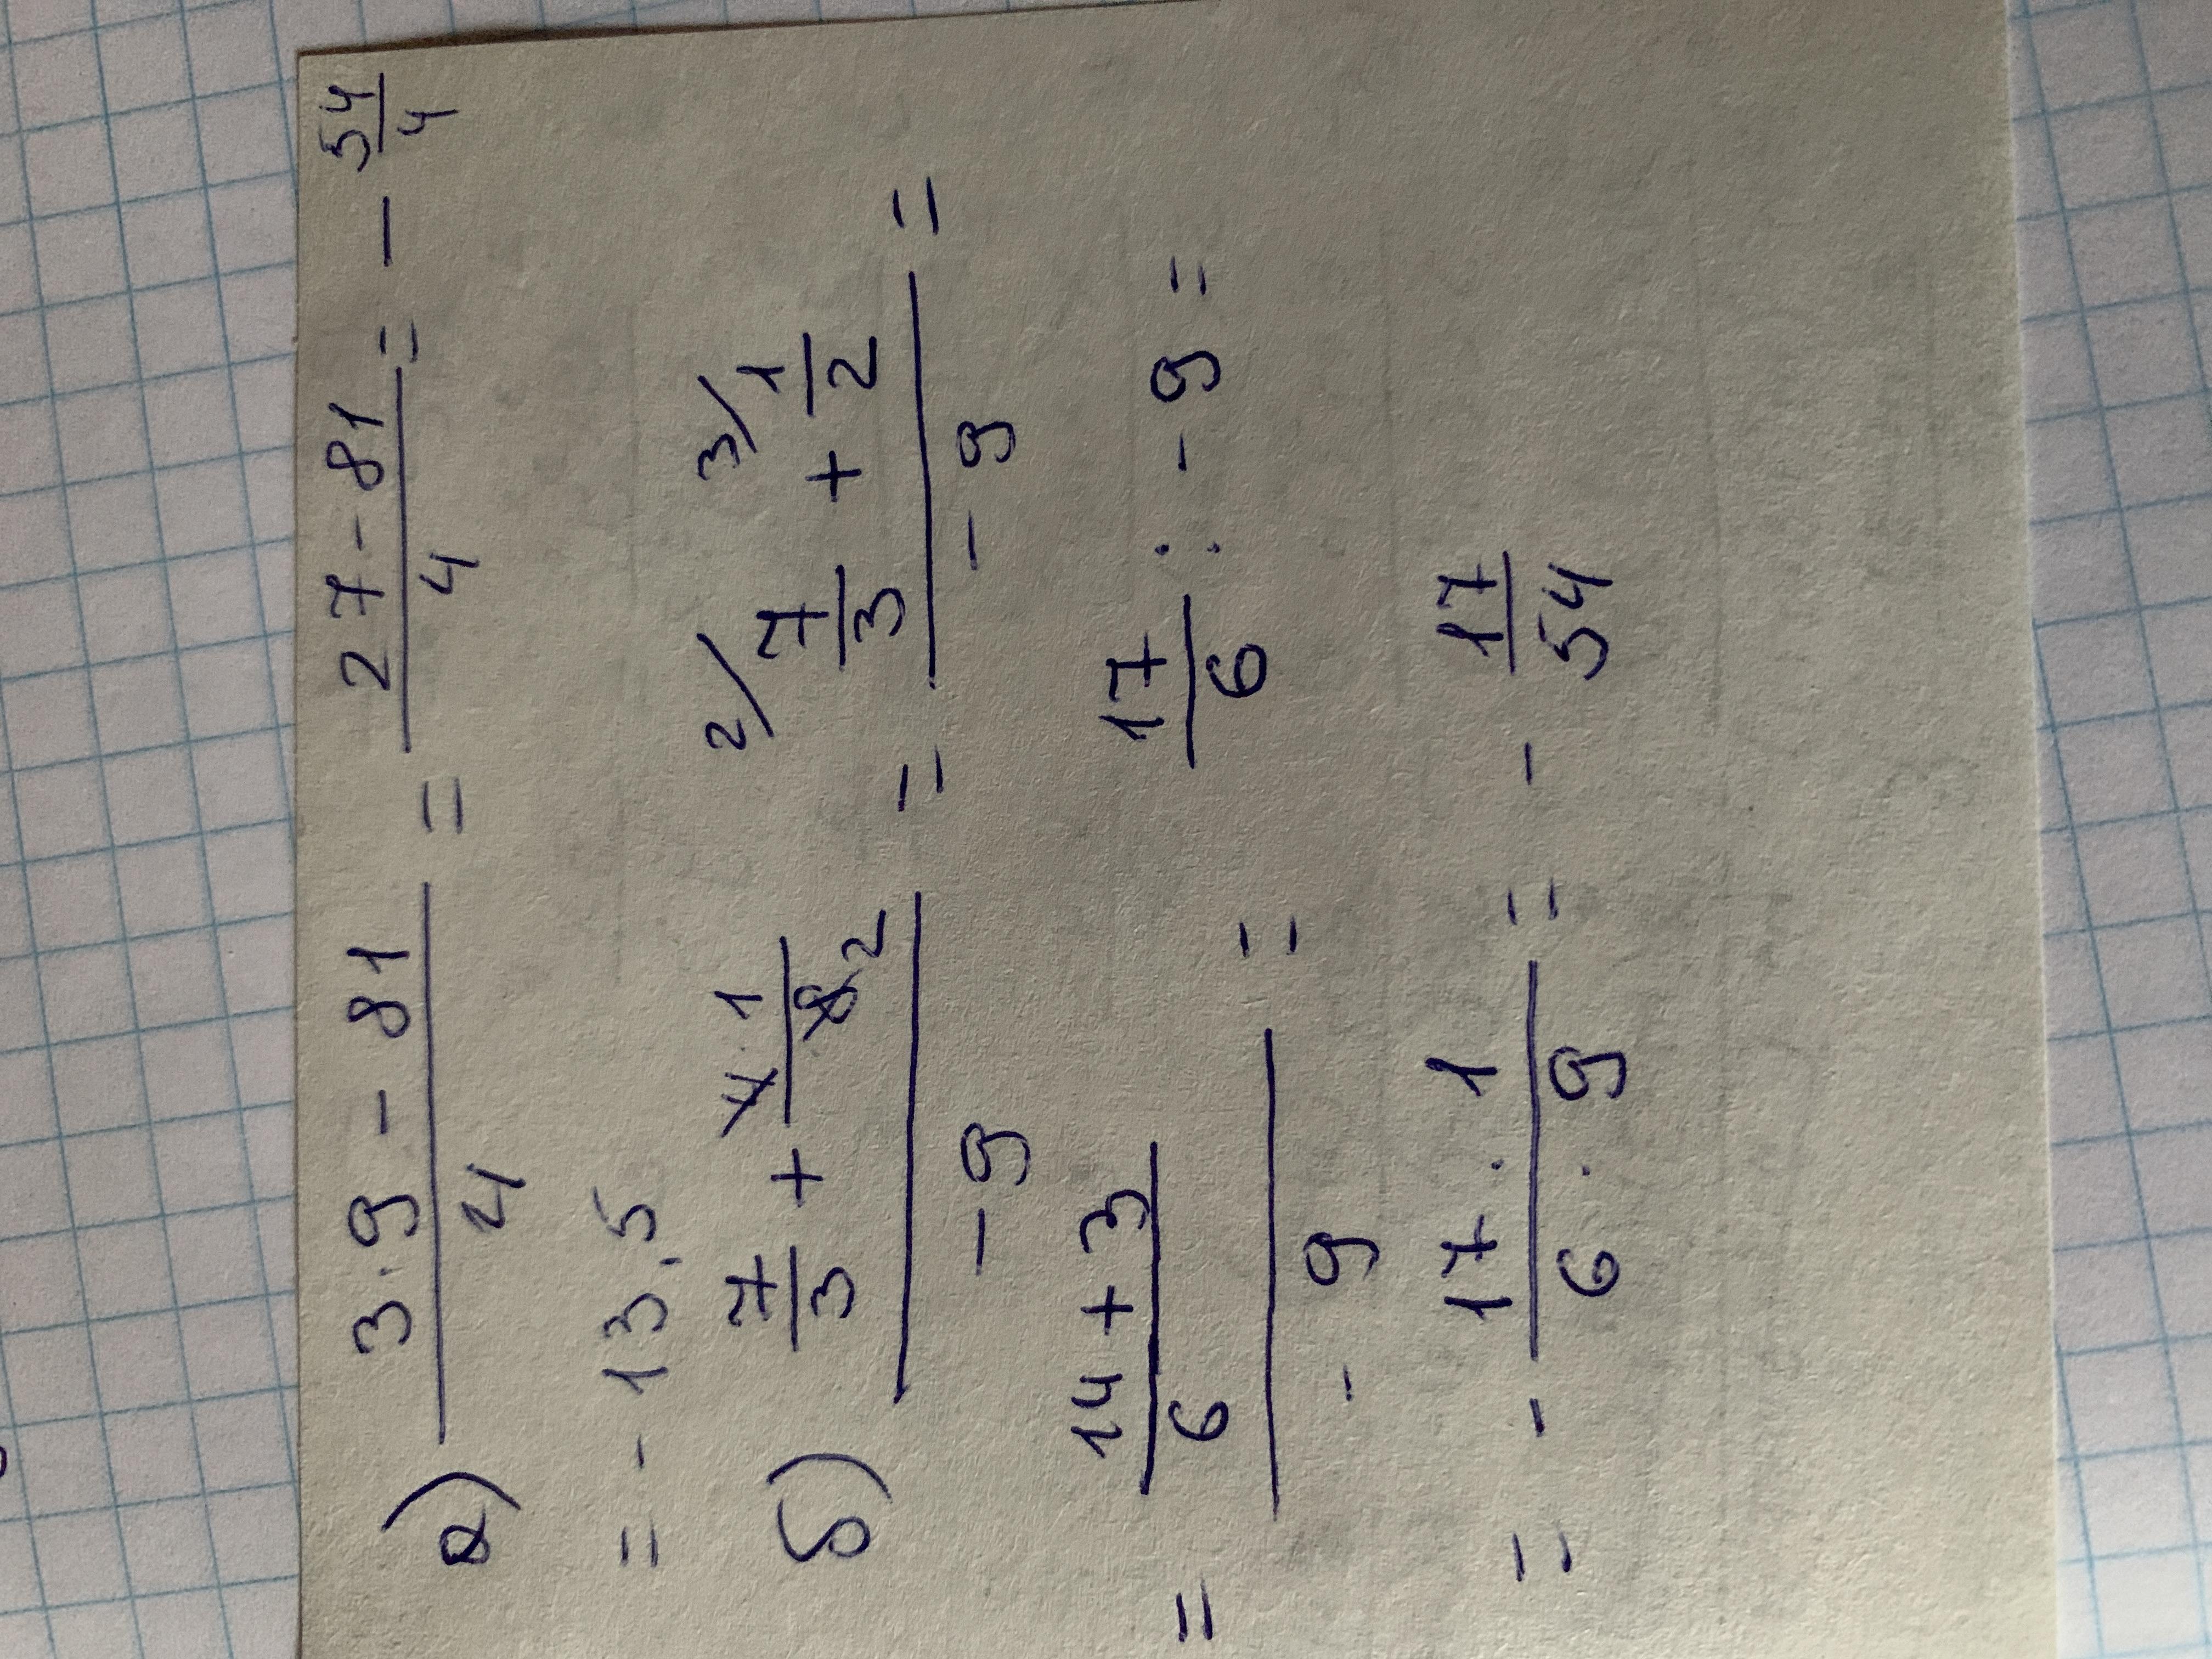 а) (3·9 - 81)/4 = (27 - 81)/4 = - 54/4
= - 13,5
б) (7/3 + (4·1)/8 2)/(-9) = (2/ 7/3 + 3/ 1/2)/(-9) =
= ((14 + 3)/6)/(-9) = 17/6 : -9 =
= - (17·1)/(6·9) = - 17/54